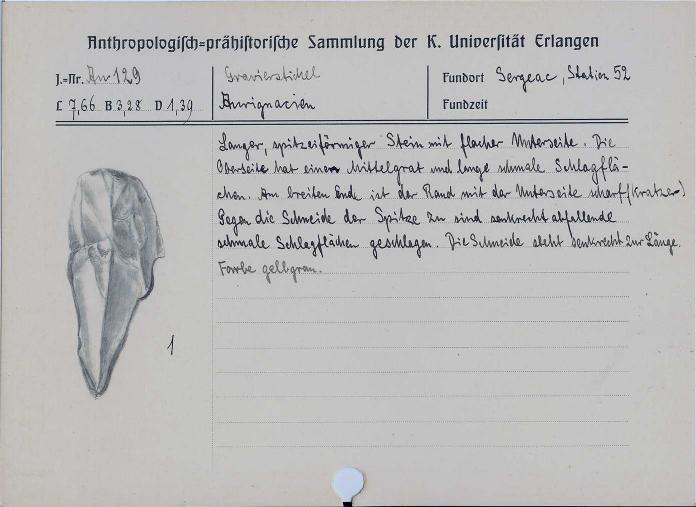 Anthropologisch=prähistorische Sammlung der K. Universität Erlangen
J.=Nr. Au 129
L 7,66 B 3,28 D 1,39
Gravierstichel
Aurignacien
Fundort Sergeac, Station 52
Fundzeit
Langer, spitzeiförmiger Stein mit flacher Unterseite. Die
Oberseite hat einen Mittelgrat und lange schmale Schlagflä-
chen. Am breiten Ende ist der Rand mit der Unterseite scharf (Kratzer)
Gegen die Schneide der Spitze zu sind senkrecht abfallende
schmale Schlagflächen geschlagen. Die Schneide steht senkrecht zur Länge.
Farbe gelbgrau.
1